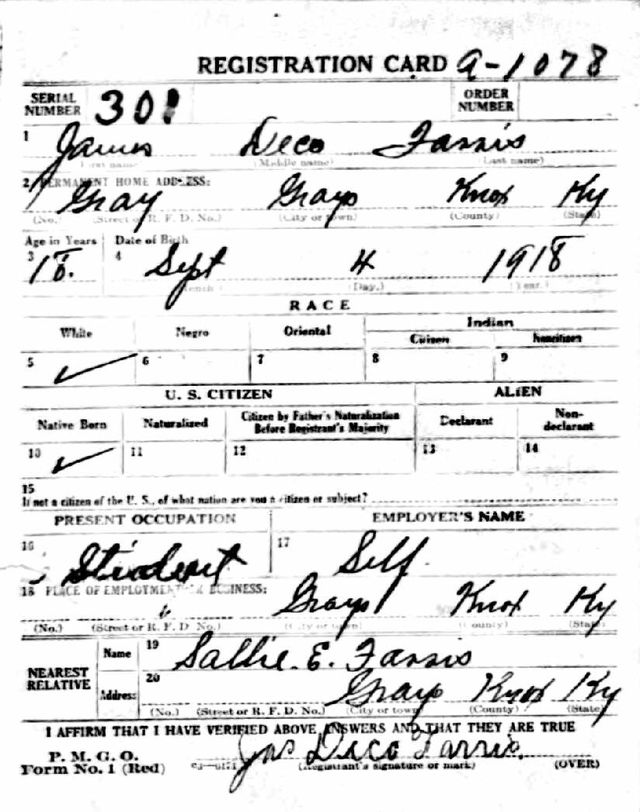 REGISTRATION CARD A-1078
SERIAL NUMBER 301 ORDER NUMBER
1 James Deco Farris
(First name) (Middle name) (Last name)
2 PERMANENT HOME ADDRESS:
Gray Grays Knox Ky
(No.) (Street or R. F. D. No.) (City or town) (County) (State)
Age in Years Date of Birth
3 18. 4 Sept 4 1918
(Month.) (Day.) (Year.)
RACE
White Negro Oriental Indian
Citizen Noncitizen
5 ✓ 6 7 8 9
U. S. CITIZEN ALIEN
Native Born Naturalized Citizen by Father's Naturalization Before Registrant's Majority Declarant Non-declarant
10 ✓ 11 12 13 14
15
If not a citizen of the U. S., of what nation are you a citizen or subject?
PRESENT OCCUPATION EMPLOYER'S NAME
16 Student 17 Self
18 PLACE OF EMPLOYMENT OR BUSINESS:
Grays Knox Ky
(No.) (Street or R. F. D. No.) (City or town) (County) (State)
NEAREST RELATIVE Name 19 Sallie E. Farris
Address: 20 Grays Knox Ky
(No.) (Street or R. F. D. No.) (City or town) (County) (State)
I AFFIRM THAT I HAVE VERIFIED ABOVE ANSWERS AND THAT THEY ARE TRUE
P. M. G. O.
Form No. 1 (Red) Jas Deco Farris
(Registrant's signature or mark) (OVER)